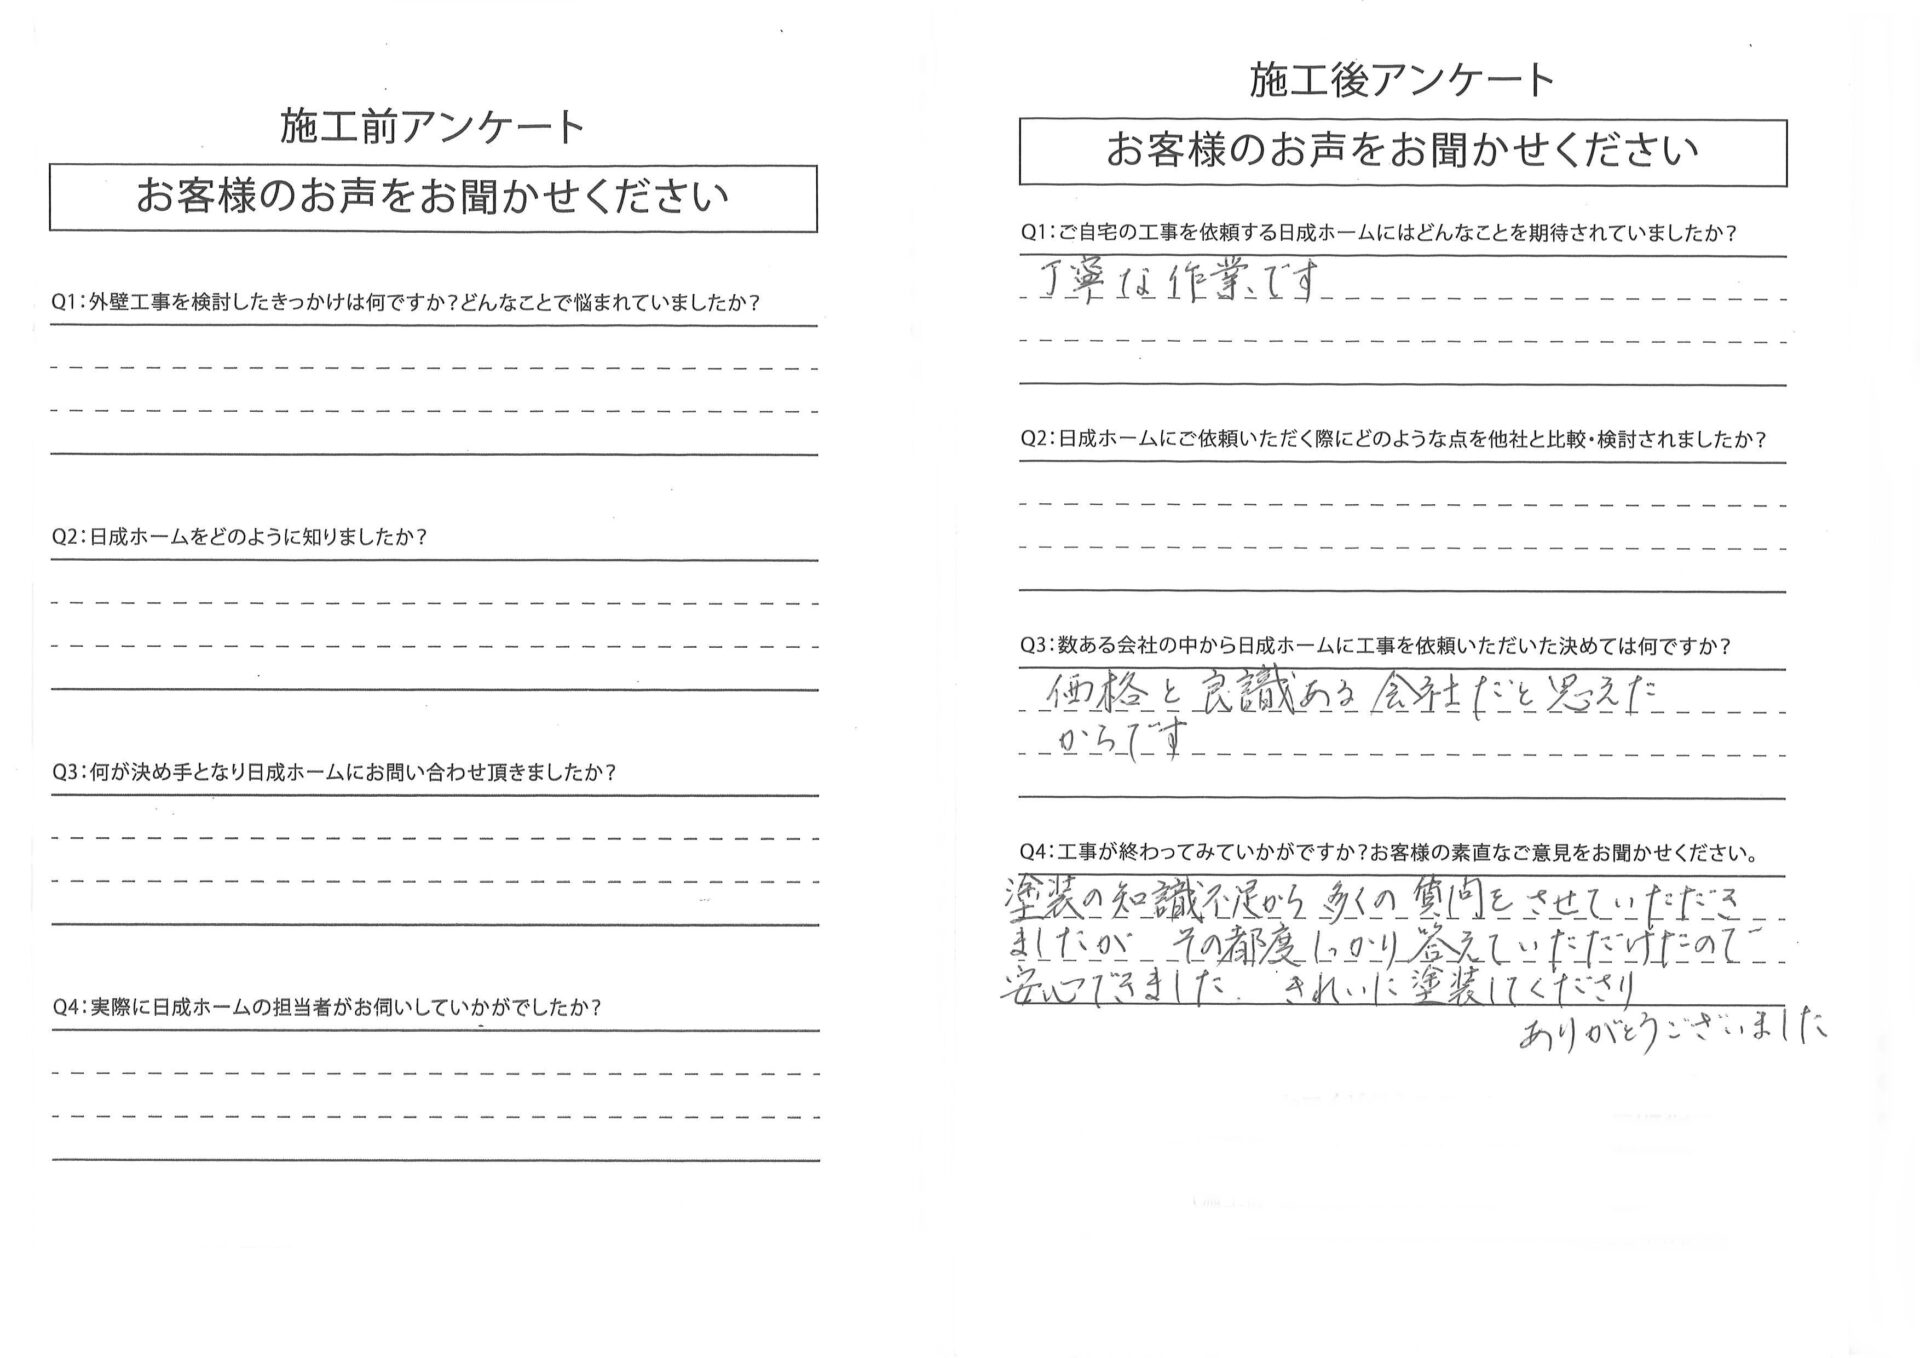 施工前アンケート
お客様のお声をお聞かせください
Q1:外壁工事を検討したきっかけは何ですか?どんなことで悩まれていましたか?
Q2:日成ホームをどのように知りましたか?
Q3:何が決め手となり日成ホームにお問い合わせ頂きましたか?
Q4:実際に日成ホームの担当者がお伺いしていかがでしたか?
施工後アンケート
お客様のお声をお聞かせください
Q1:ご自宅の工事を依頼する日成ホームにはどんなことを期待されていましたか?
丁寧な作業です
Q2:日成ホームにご依頼いただく際にどのような点を他社と比較・検討されましたか?
Q3:数ある会社の中から日成ホームに工事を依頼いただいた決めては何ですか?
価格と良識ある会社だと思えた
からです
Q4:工事が終わってみていかがですか?お客様の素直なご意見をお聞かせください。
塗装の知識不足から多くの質問をさせていただき
ましたが その都度しっかり答えていただけたので
安心できました. きれいに塗装してくださり
ありがとうございました